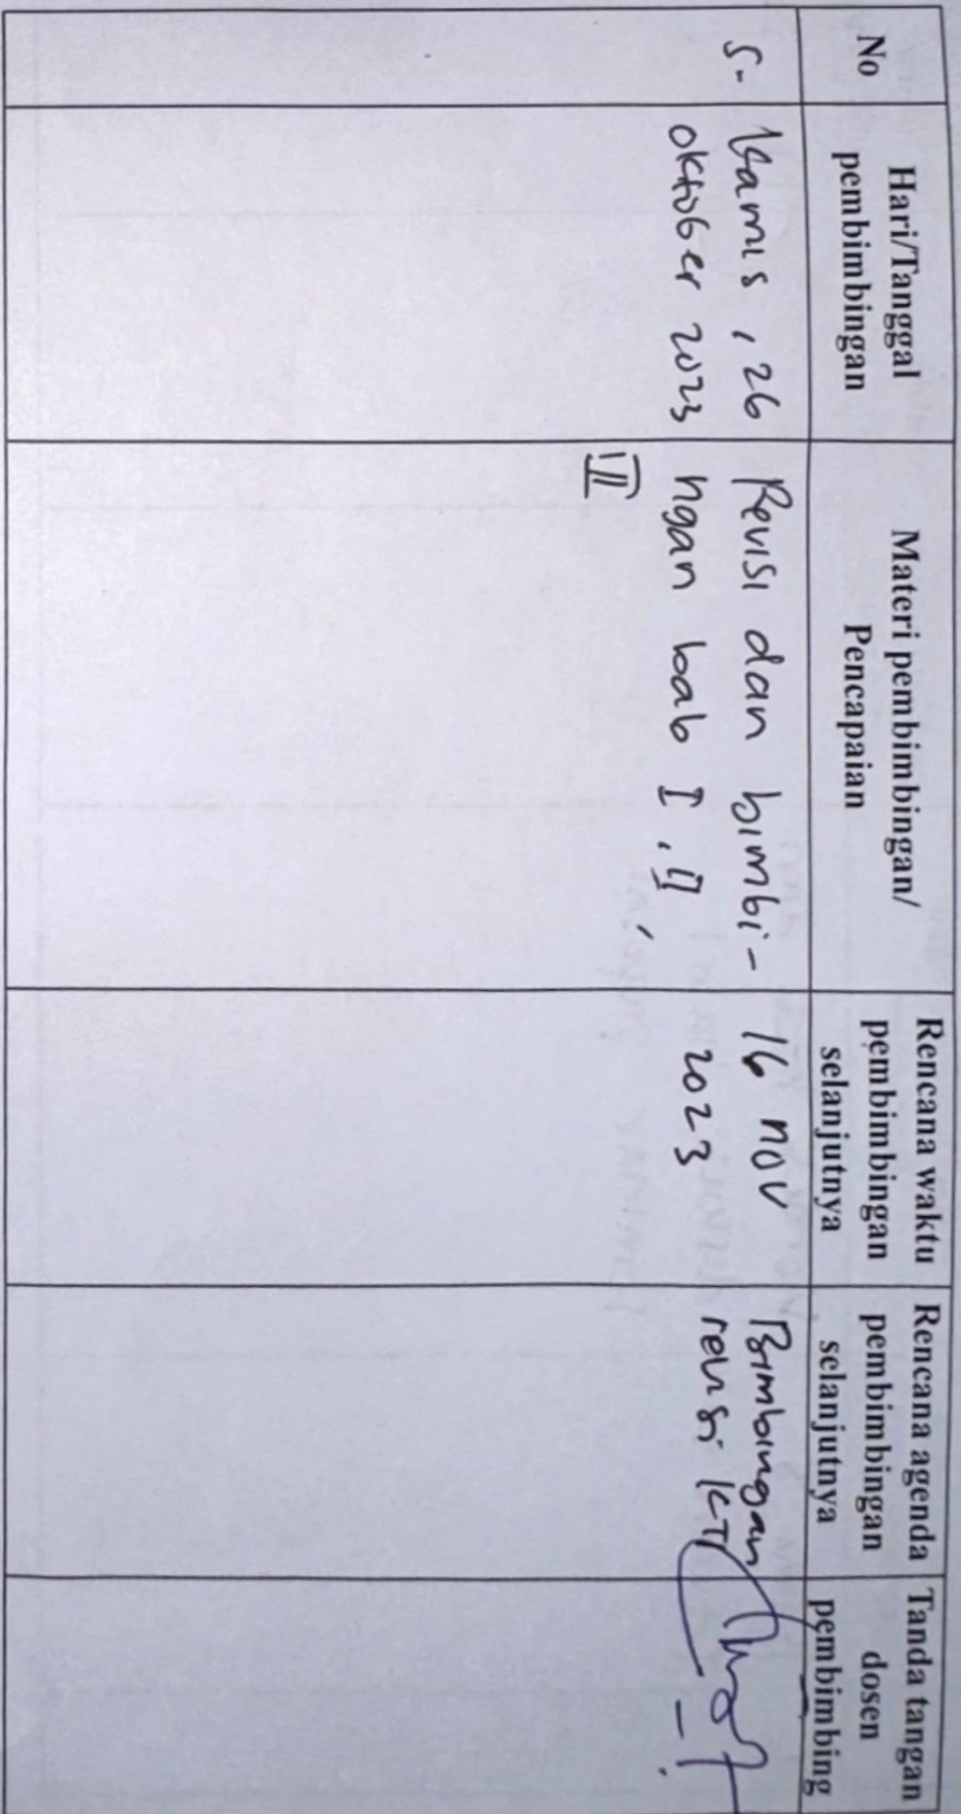 No
Hari/Tanggal
pembimbingan
Materi pembimbingan/
Pencapaian
Rencana waktu
pembimbingan
selanjutnya
Rencana agenda
pembimbingan
selanjutnya
Tanda tangan
dosen
pembimbing
5-
Kamis, 26
oktober 2023
Revisi dan bimbi-
ngan bab I, II,
III
16 nov
2023
Bimbingan
revisi KTI